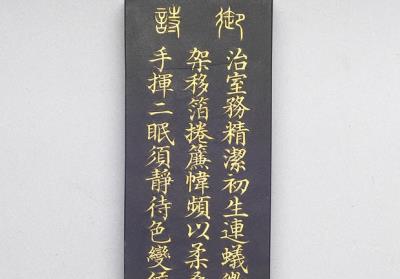 御詩
治室務精潔初生連蟻
架移箔捲簾幃頻以柔
手揮二眠須靜待色變